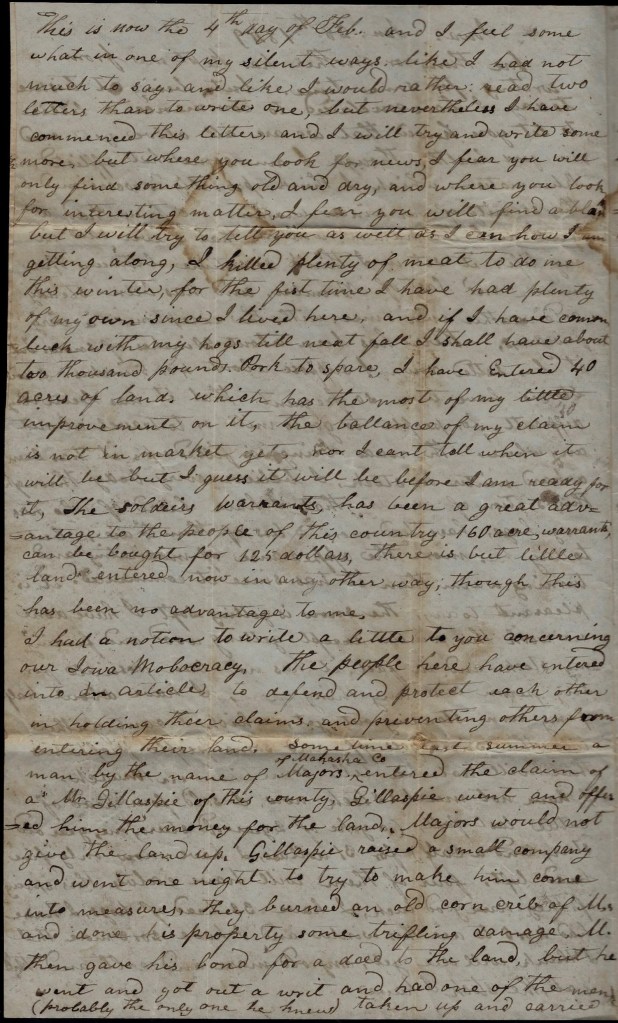 This is now the 4th day of Feb. and I feel some
what in one of my silent ways. like I had not
much to say and like I would rather read two
letters than to write one, but nevertheless I have
commenced this letter, and I will try and write some
more, but where you look for news, I fear you will
only find something old and dry, and where you look
for interesting matter, I fear you will find a
but I will try to tell you as well as I can how I am
getting along, I killed plenty of meat to do me
this winter, for the fist time I have had plenty
of my own since I lived here, and if I have common
luck with my hogs till next fall I shall have about
two thousand pounds Pork to spare, I have Entered 40
acres of land, which has the most of my little
improvement on it, the ballance of my claim
is not in market yet, nor I cant tell when it
will be but I guess it will be before I am ready for
it, The soldiers Warrants, has been a great adv=
=antage to the people of this country. 160 acre warrants,
can be bought for 125 dollars, there is but little
land entered now in any other way, though this
has been no advantage to me,
I had a notion to write a little to you concerning
our Iowa Mobocracy, The people here have intered
into an article to defend and protect each other
in holding their claims and preventing others from
entering their land. some time last summer a
man by the name of Majors of Mahaska Co entered the claim of
a Mr Gillaspie of this county, Gillaspie went and offer
=ed him the money for the land, Majors would not
give the land up, Gillaspie raised a small company
and went one night to try to make him come
into measures, they burned an old corn crib of Ms
and done his property some trifling damage, M.
then gave his bond for a deed to the land, but he
went and got out a writ and had one of the men
(probably the only one he knew) taken up and carried